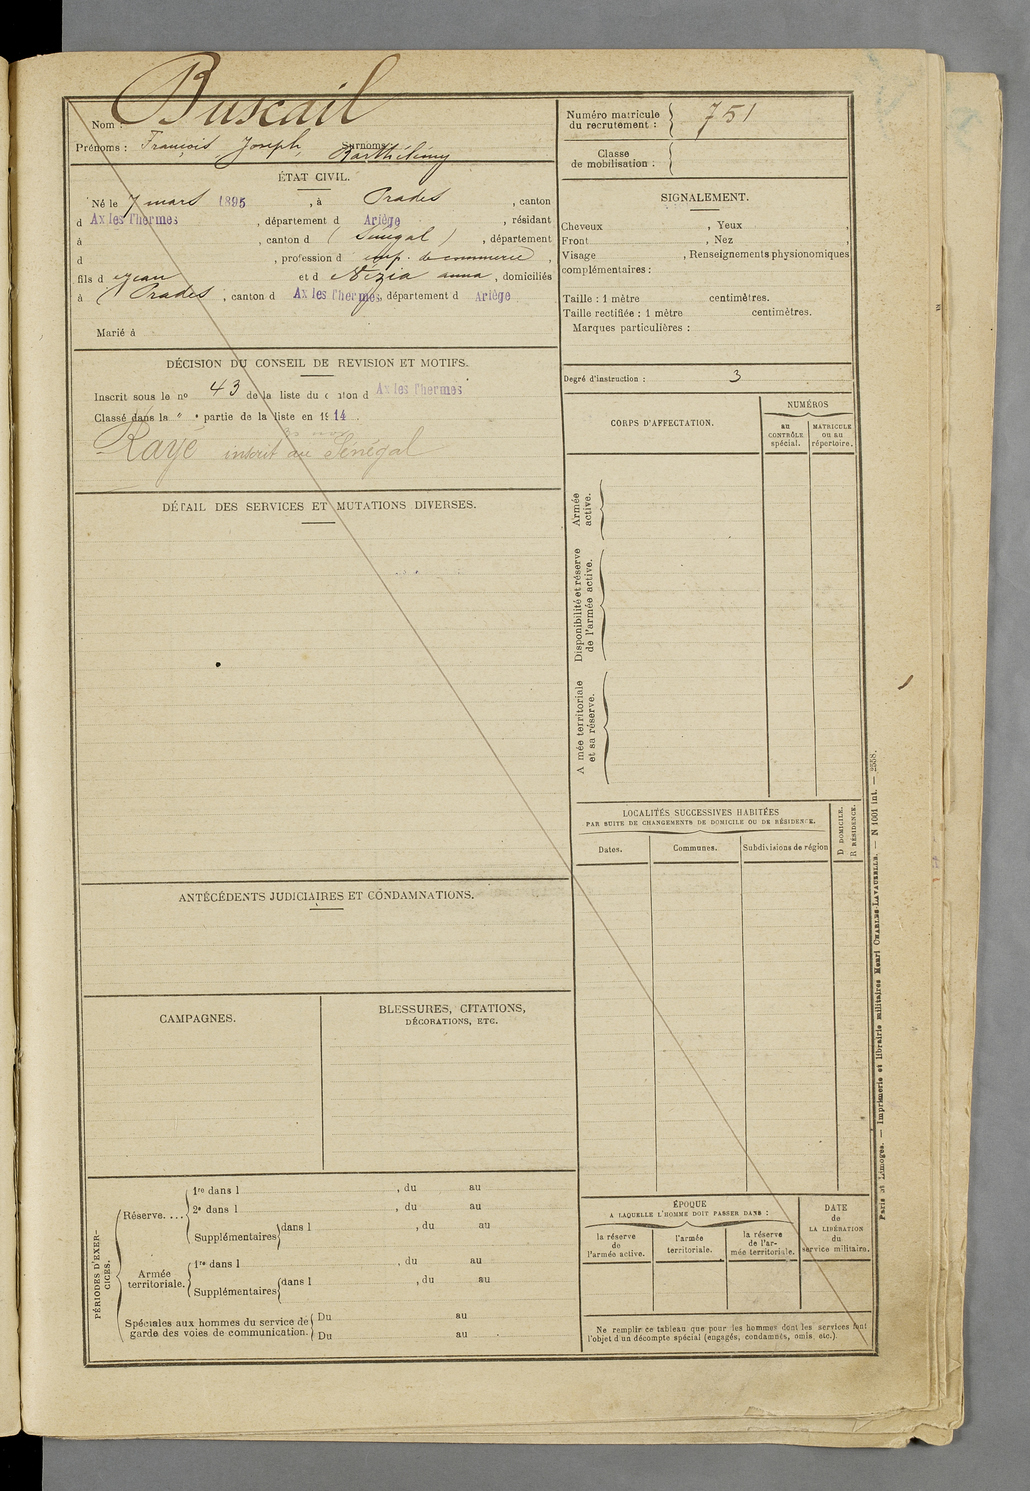 Nom : Buscail
Prénoms : François Joseph Barthélémy Surnoms :
ÉTAT CIVIL.
Né le 7 mars 1895, à Prades, canton
d Ax les Thermes, département d Ariège, résidant
à , canton d ( Sénégal ), département
d , profession d emp. de commerce,
fils d Jean et d Nézia anna, domiciliés
à Prades, canton d Ax les Thermes, département d Ariège
Marié à
DÉCISION DU CONSEIL DE REVISION ET MOTIFS.
Inscrit sous le no 43 de la liste du canton d Ax les Thermes
Classé dans la " " partie de la liste en 1914.
Rayé inscrit au Sénégal
DÉTAIL DES SERVICES ET MUTATIONS DIVERSES.
ANTÉCÉDENTS JUDICIAIRES ET CONDAMNATIONS.
CAMPAGNES.
BLESSURES, CITATIONS,
DÉCORATIONS, ETC.
PÉRIODES D'EXER-
CICES.
Réserve....
1re dans l , du au
2e dans l , du au
Supplémentaires dans l , du au
Armée
territoriale.
1re dans l , du au
Supplémentaires dans l , du au
Spéciales aux hommes du service de
garde des voies de communication.
Du au
Du au
Numéro matricule
du recrutement : 751
Classe
de mobilisation :
SIGNALEMENT.
Cheveux , Yeux ,
Front , Nez ,
Visage , Renseignements physionomiques
complémentaires :
Taille : 1 mètre centimètres.
Taille rectifiée : 1 mètre centimètres.
Marques particulières :
Degré d'instruction : 3
CORPS D'AFFECTATION.
NUMÉROS
au
CONTRÔLE
spécial.
MATRICULE
ou au
répertoire.
Armée
active.
Disponibilité et réserve
de l'armée active.
A mée territoriale
et sa réserve.
LOCALITÉS SUCCESSIVES HABITÉES
PAR SUITE DE CHANGEMENTS DE DOMICILE OU DE RÉSIDENCE.
D DOMICILE.
R RÉSIDENCE.
Dates.
Communes.
Subdivisions de région
ÉPOQUE
A LAQUELLE L'HOMME DOIT PASSER DANS :
la réserve
de
l'armée active.
l'armée
territoriale.
la réserve
de l'ar-
mée territoriale.
DATE
de
LA LIBÉRATION
du
service militaire.
Ne remplir ce tableau que pour les hommes dont les services font
l'objet d'un décompte spécial (engagés, condamnés, omis, etc.).
Paris et Limoges. — Imprimerie et librairie militaires Henri CHARLES-LAVAUZELLE. — N 1001 int. — 2558.